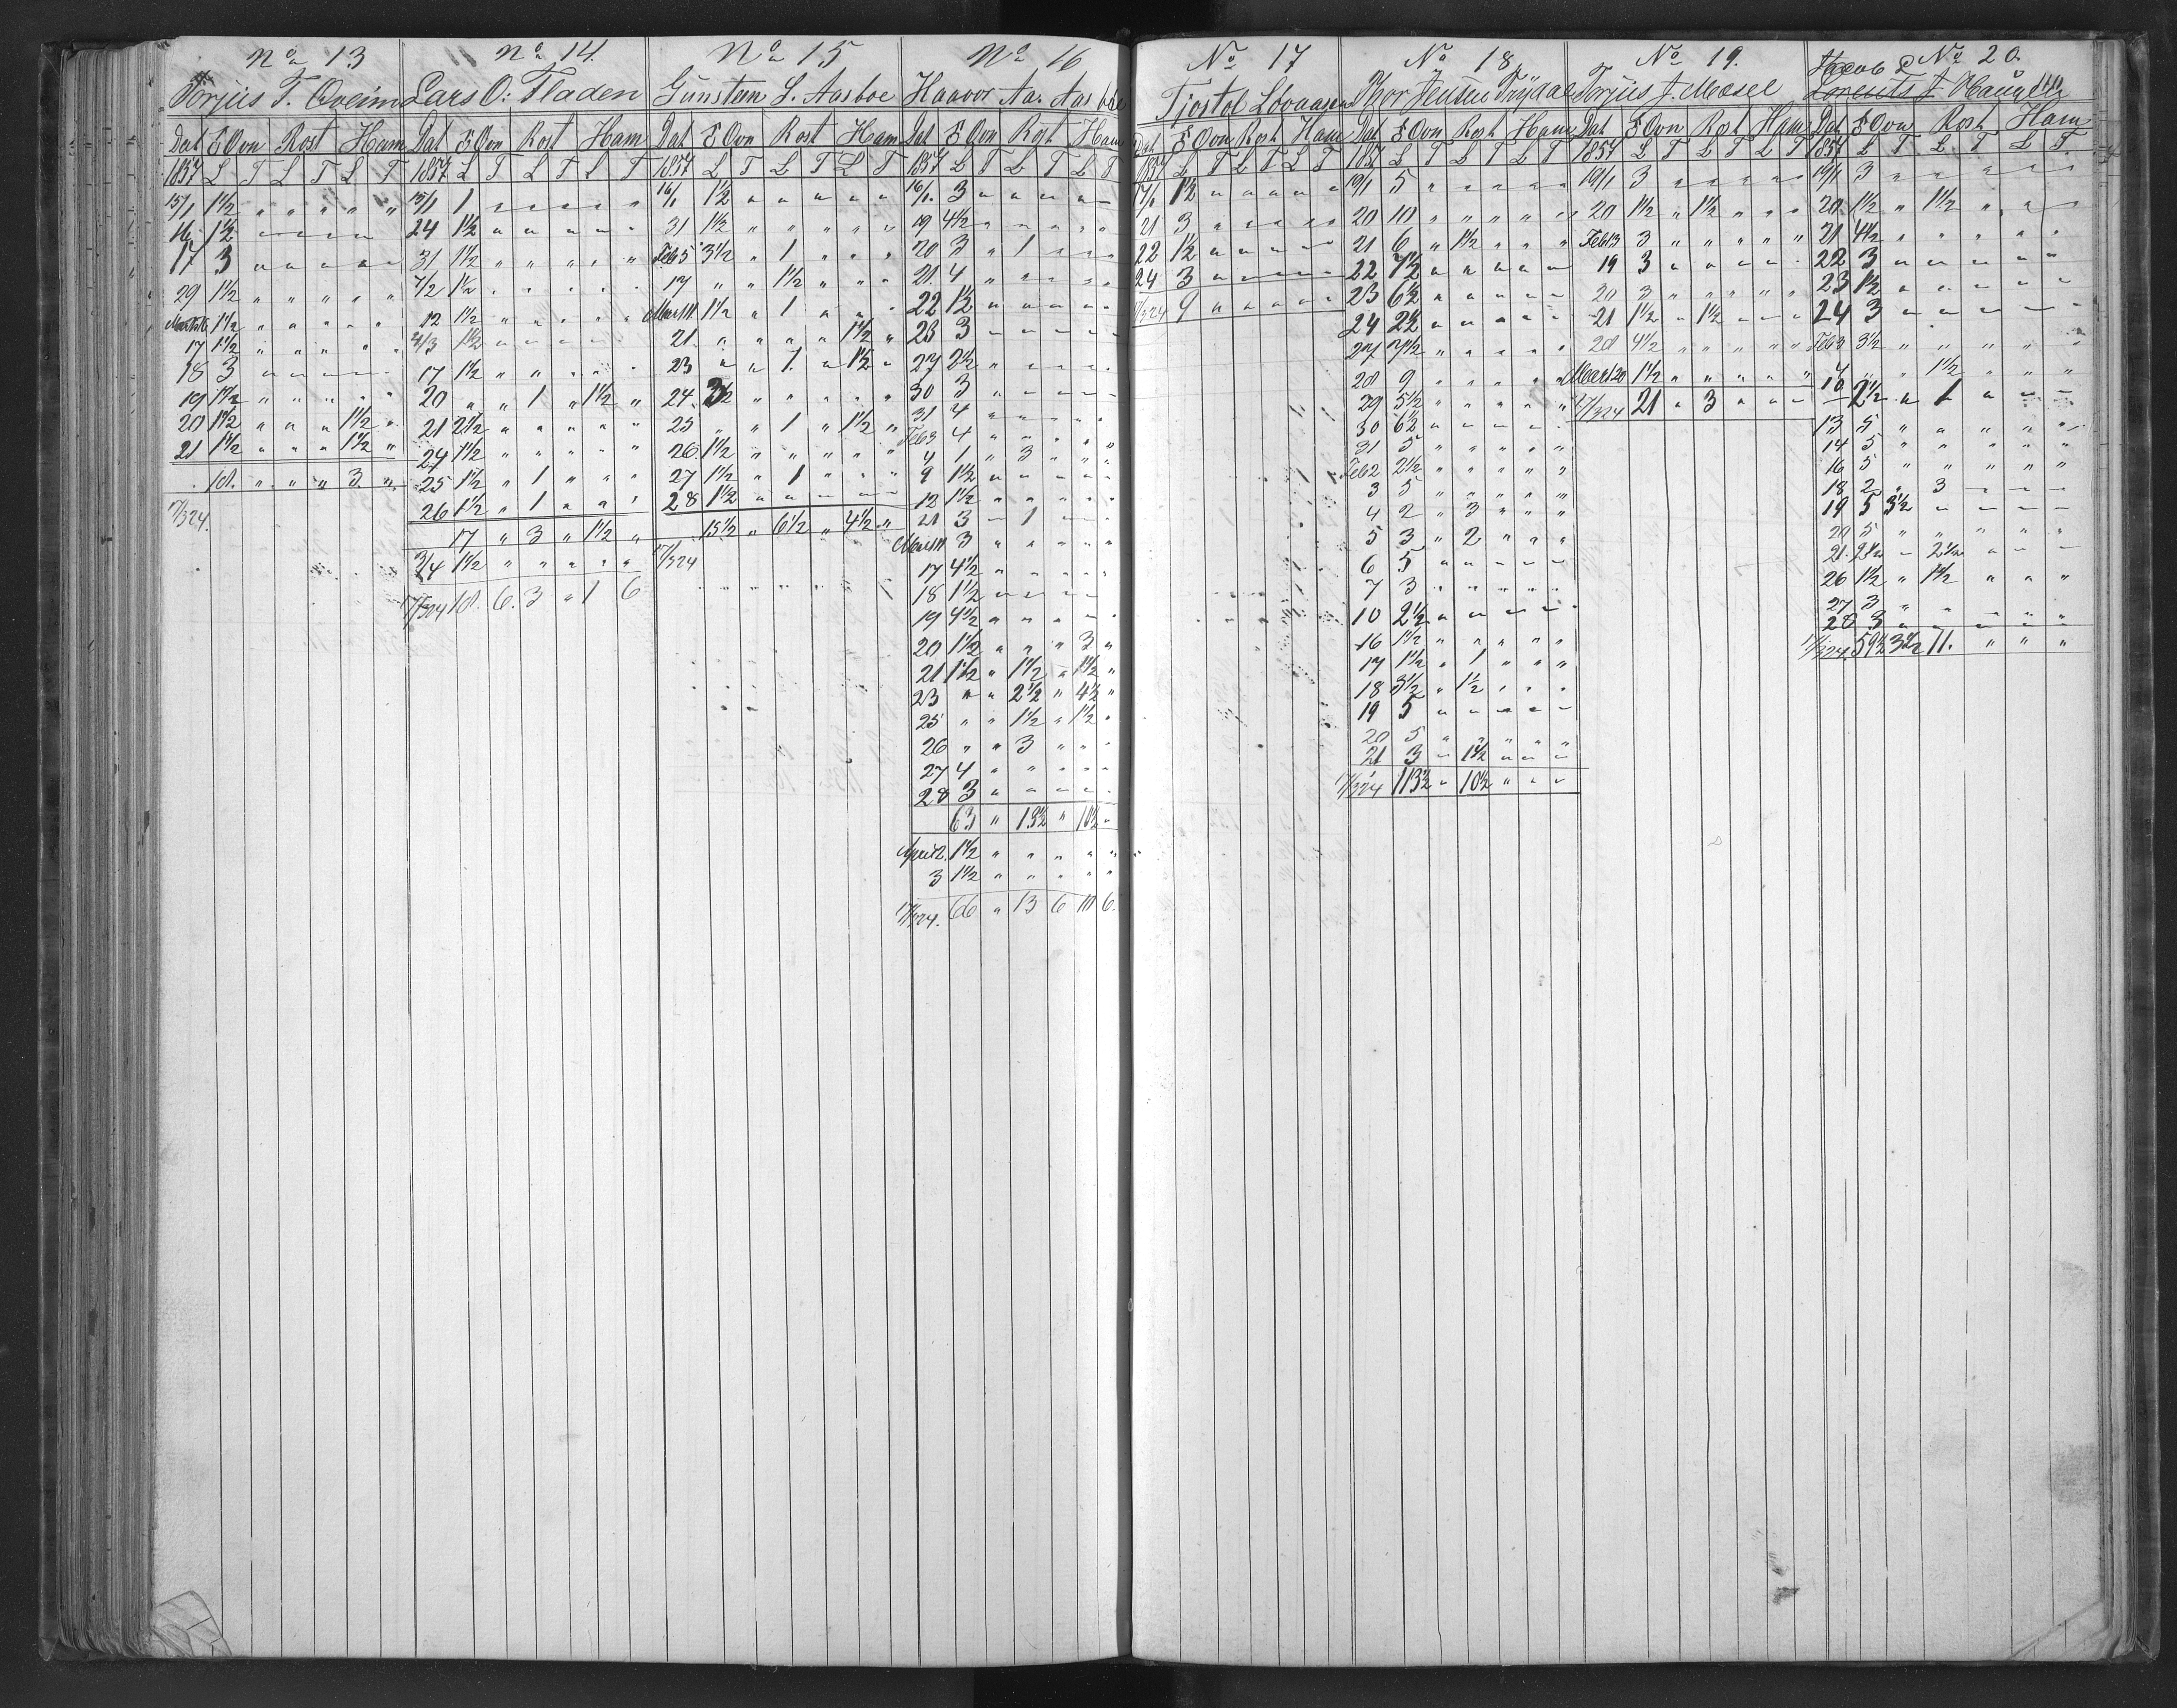 No 13
Torjus T. Qveim
Dat S Ovn Rost Ham
1857 L T L T L T
15/1 1½ " " " " "
16 1½ " " " " "
17 3 " " " " "
29 1½ " " " " "
1½ " " " " "
17 1½ " " " " "
18 3 " " " " "
19 1½ " " " " "
20 1½ " " " 1½ "
21 1½ " " " 1½ "
18. " " " 3 "
17/3 24.
No 14.
Lars O: Fladen
Dat S Ovn Rost Ham
1857 L T L T L T
15/1 1 " " " " "
24 1½ " " " " "
31 1½ " " " " "
4/2 1½ " " " " "
12 1½ " " " " "
1½ " " " " "
17 1½ " " " " "
20 " " 1 " 1½ "
21 2½ " " " " "
24 1½ " " " " "
25 1½ " 1 " " "
26 1½ " 1 " " "
17 " 3 " 1½ "
3/4 1½ " " " " "
17/3 24 18. 6. 3 " 1 6
No 15
Gunsten L. Aasboe
Dat S Ovn Rost Ham
1857 L T L T L T
16/1 1½ " " " " "
31 1½ " " " " "
Feb 5 3½ " 1 " " "
17 " " 1½ " " "
1½ " 1 " " "
21. " " " " 1½ "
23 " " 1. " 1½ "
24. 3½ " " " " "
25 " " 1 " 1½ "
26. 1½ " " " " "
27 1½ " 1 " " "
28 1½ " " " " "
15½ " 6½ " 4½ "
17/3 24
No 16
Haavor Aa. Aasboe
Dat S Ovn Rost Ham
1857 L T L T L T
16/1. 3 " " " " "
19 4½ " " " " "
20 3 " 1 " " "
21. 4 " " " " "
22 1½ " " " " "
23 3 " " " " "
27 2½ " " " " "
30 3 " " " " "
31 4 " " " " "
Feb 3 4 " " " " "
4 1 " 3 " " "
9 1½ " " " " "
12 1½ " " " " "
21 3 " 1 " " "
3 " " " " "
17 4½ " " " " "
18 1½ " " " " "
19 4½ " " " " "
20 1½ " " " 3 "
21 1½ " 1½ " 1½ "
23 " " 2½ " 4½ "
25 " " 1½ " 1½ "
26 " " 3 " " "
27 4 " " " " "
28 3 " " " " "
63 " 13½ " 10½ "
April 2. 1½ " " " " "
3 1½ " " " " "
17/3 24. 66 " 13 6 10 6.
No 17
Tjostol
Dat S Ovn Rost Ham
1857 L T L T L T
17/1 1½ " " " " "
21 3 " " " " "
22 1½ " " " " "
24 3 " " " " "
17/3 24 9 " " " " "
No 18
Thor Jensen Trydal
Dat S Ovn Rost Ham
1857 L T L T L T
19/1 5 " " " " "
20 10 " " " " "
21 6 " 1½ " " "
22 7½ " " " " "
23 6½ " " " " "
24 2½ " " " " "
27 7½ " " " " "
28 9 " " " " "
29 5½ " " " " "
30 6½ " " " " "
31 5 " " " " "
Feb 2 2½ " " " " "
3 5 " " " " "
4 2 " 3 " " "
5 3 " 2 " " "
6 5 " " " " "
7 3 " " " " "
10 2½ " " " " "
16 1½ " " " " "
17 1½ " 1 " " "
18 3½ " 1½ " " "
19 5 " " " " "
20 5 " " " " "
21 3 " 1½ " " "
17/3 24 113½ " 10½ " " "
No 19.
Torjus J. Mæsel
Dat S Ovn Rost Ham
1857 L T L T L T
19/1 3 " " " " "
20 1½ " 1½ " " "
Feb 13 3 " " " " "
19 3 " " " " "
20 3 " " " " "
21 1½ " 1½ " " "
28 4½ " " " " "
Mart 20 1½ " " " " "
17/3 24 21 " 3 " " "
No 20.
Jacob
Lorents J. Haug
Dat S Ovn Rost Ham
1857 L T L T L T
19/1 3 " " " " "
20. 1½ " 1½ " " "
21 4½ " " " " "
22 3 " " " " "
23 1½ " " " " "
24 3 " " " " "
Feb 3 3½ " " " " "
4 " " 1½ " " "
10 2½ " 1 " " "
13 5 " " " " "
14 5 " " " " "
16 5 " " " " "
18 2 " 3 " " "
19 5 3½ " " " "
20 5 " " " " "
21. 2½ " 2½ " " "
26 1½ " 1½ " " "
27 3 " " " " "
28 3 " " " " "
17/3 24. 59½ 3½ 11. " " "